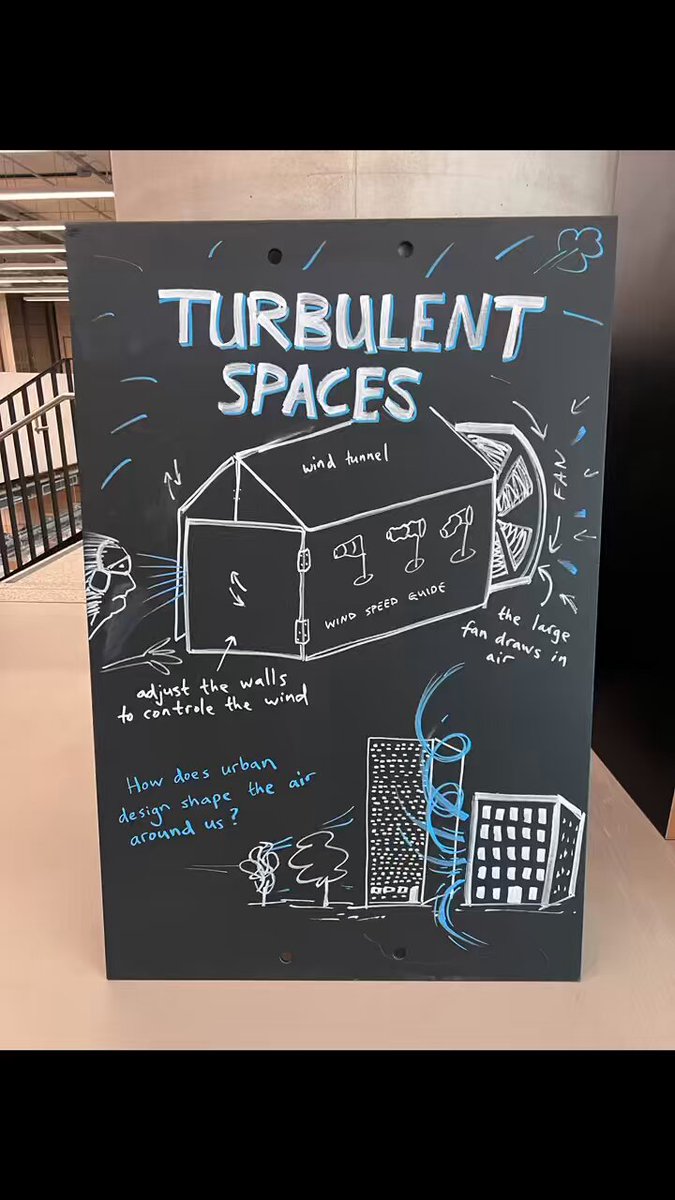 TURBULENT
SPACES
wind tunnel
FAN
WIND SPEED GUIDE
the large
fan draws in
air
adjust the walls
to controle the wind
How does urban
design shape the air
around us?